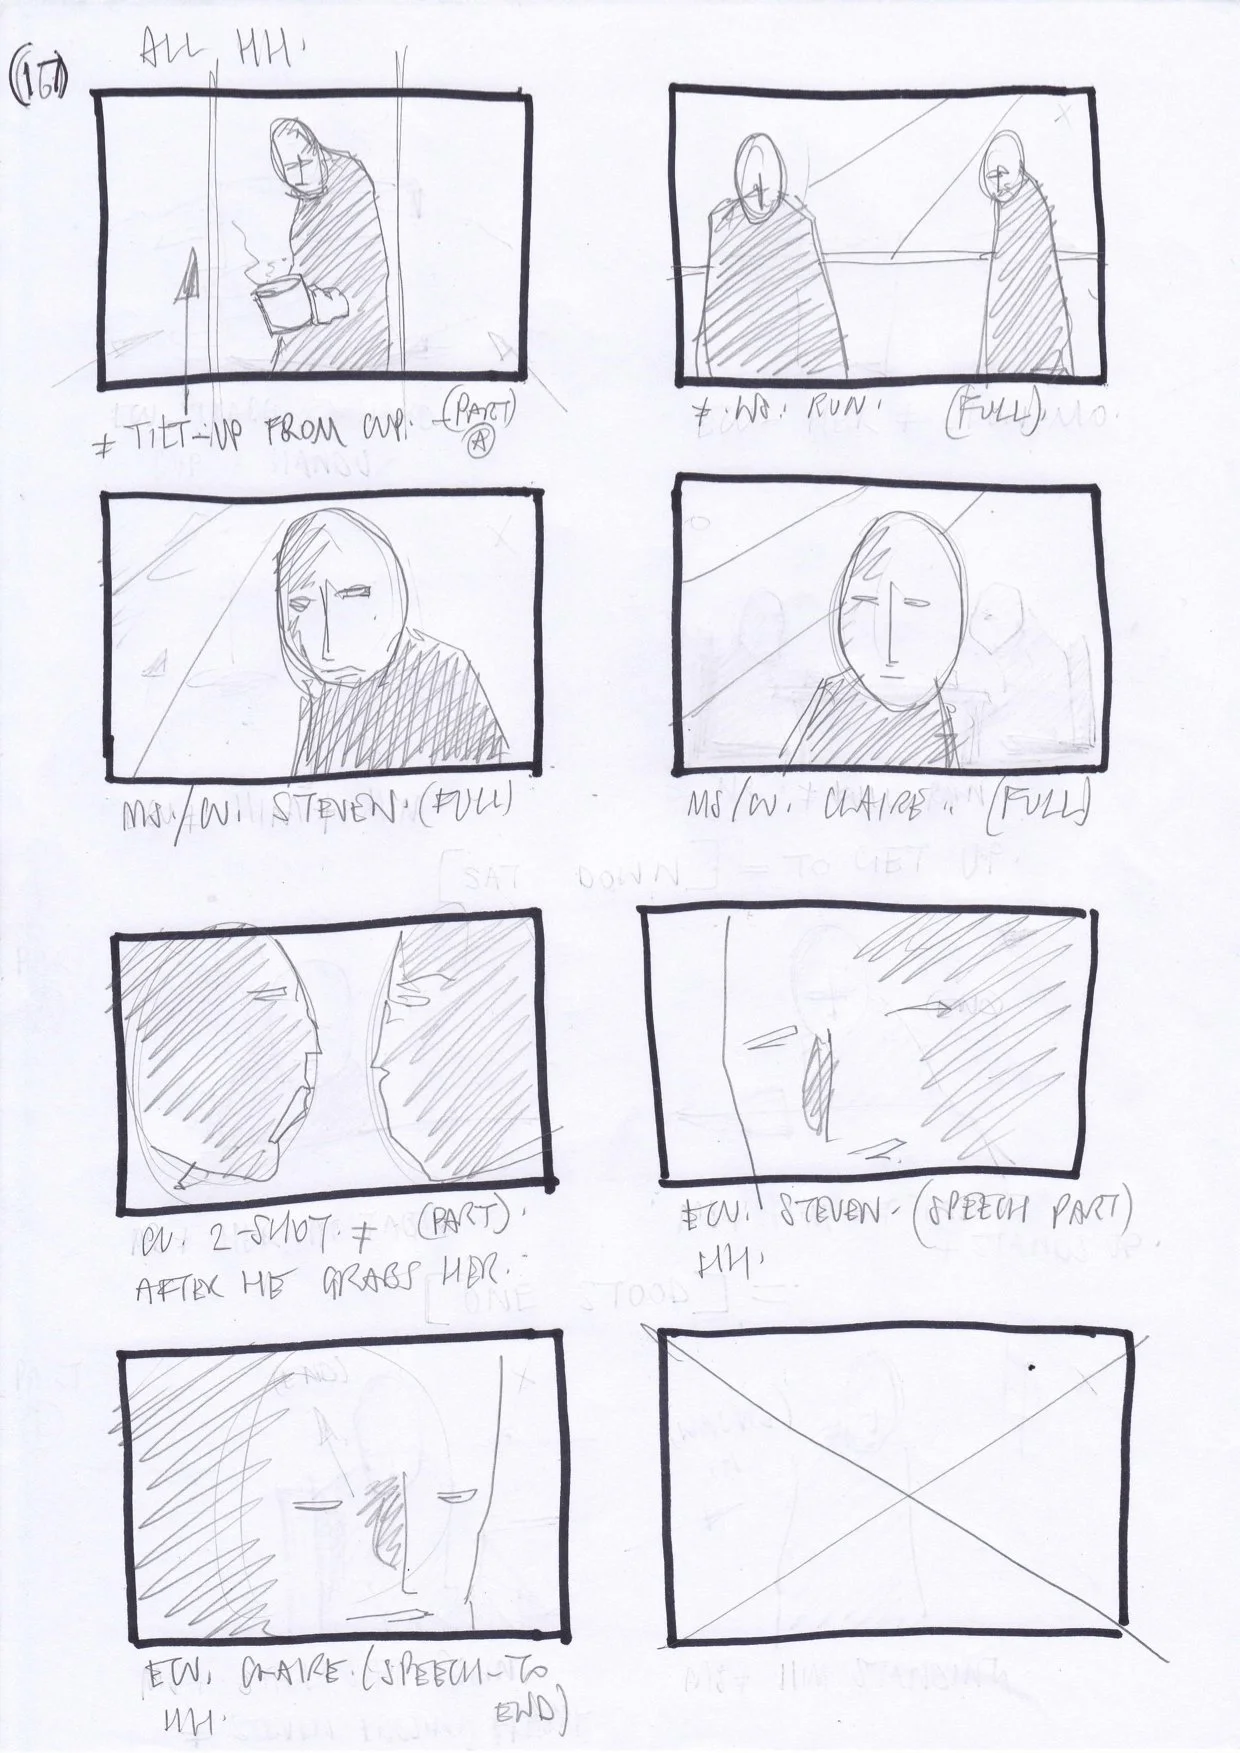 ALL HH.
≠ TILT-UP FROM CUP. (PART)
A
≠ WS. RUN. (FULL).
MS./CU. STEVEN. (FULL)
MS/CU. CLAIRE. (FULL)
CU. 2-SHOT. ≠ (PART).
AFTER HE GRABS HER.
ECU. STEVEN. (SPEECH PART)
HH.
ECU. CLAIRE. (SPEECH-TO
END)
HH.
[SAT DOWN] = TO GET UP.